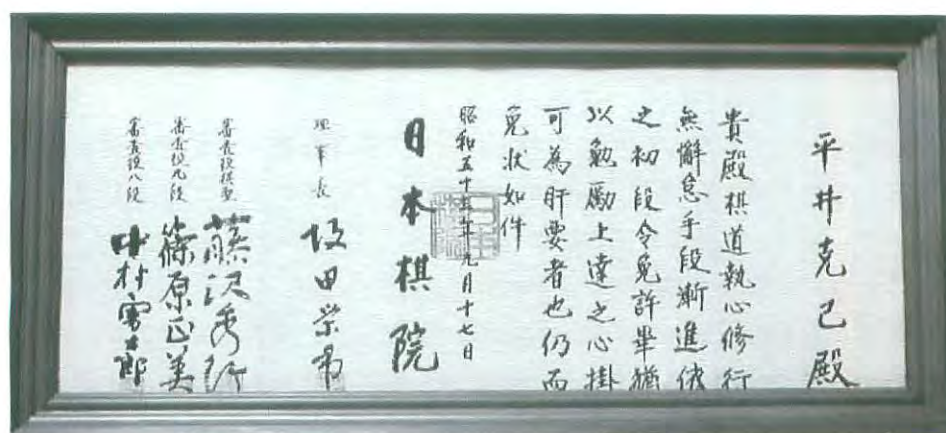 平井克己殿
貴殿棋道執心修行
無懈怠手段漸進依
之初段令免許畢猶
以勉励上達之心掛
可為肝要者也仍而
免状如件
昭和五十五年九月十七日
日本棋院
理事長 坂田栄男
審査役棋聖 藤沢秀行
審査役九段 篠原正美
審査役八段 中村勇太郎